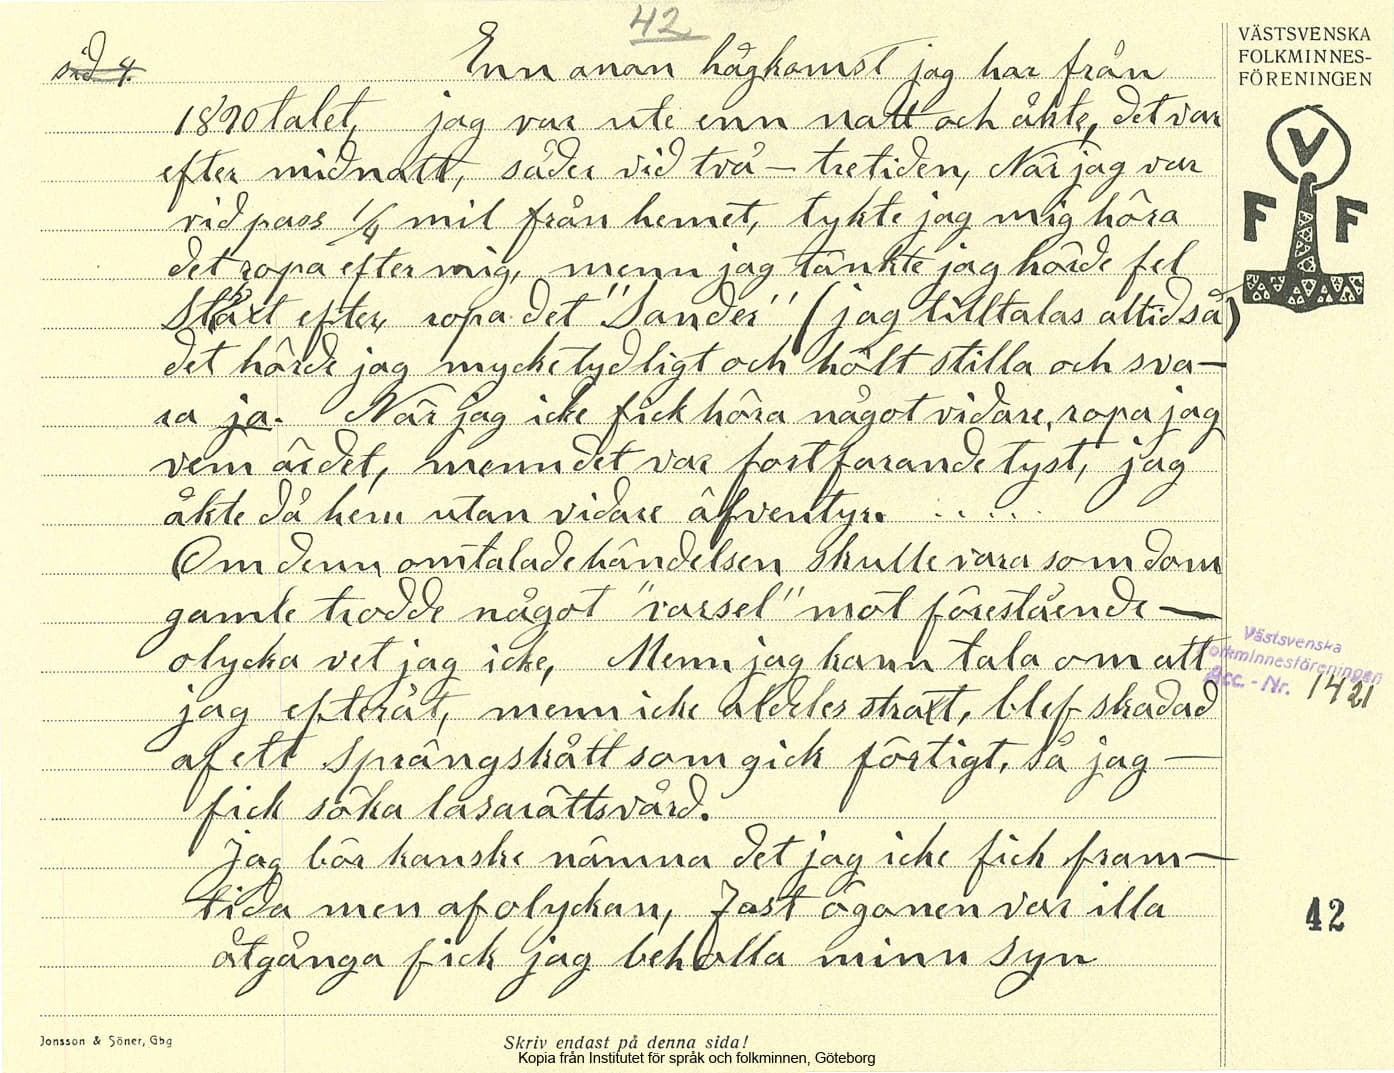 42
sid 4.
Enn anan hågkomst jag har från
1890talet, jag var ute enn natt och åkte, det var
efter midnatt, säder vid två – tretiden, När jag var
vidpass 1/4 mil från hemet, tykte jag mig höra
det ropa efter mig, menn jag tänkte jag hörde fel
Strakt efter, ropa det "Sander" (jag tilltalas alltid så)
det hörde jag mycke tydligt och hölt stilla och sva–
ra ja. När jag icke fick höra något vidare, ropa jag
vem är det, menn det var fortfarande tyst, jag
åkte då hem utan vidare äfventyr.
Om denn omtalade händelsen skulle vara som dom
gamle trodde något "varsel" mot förestående –
olycka vet jag icke, Menn jag kann tala om att
jag efteråt, menn icke aldeles straxt, blef skadad
af ett sprängskått som gick förtigt, så jag –
fick söka lasarättsvård.
Jag bör kanske nämna det jag icke fick fram–
tida men af olyckan, Fast ögonen var illa
åtgånga fick jag behålla minn syn
VÄSTSVENSKA
FOLKMINNES-
FÖRENINGEN
V
F F
Västsvenska
folkminnesföreningen
Acc. - Nr. 1421
42
Jonsson & Söner, Gbg
Skriv endast på denna sida!
Kopia från Institutet för språk och folkminnen, Göteborg